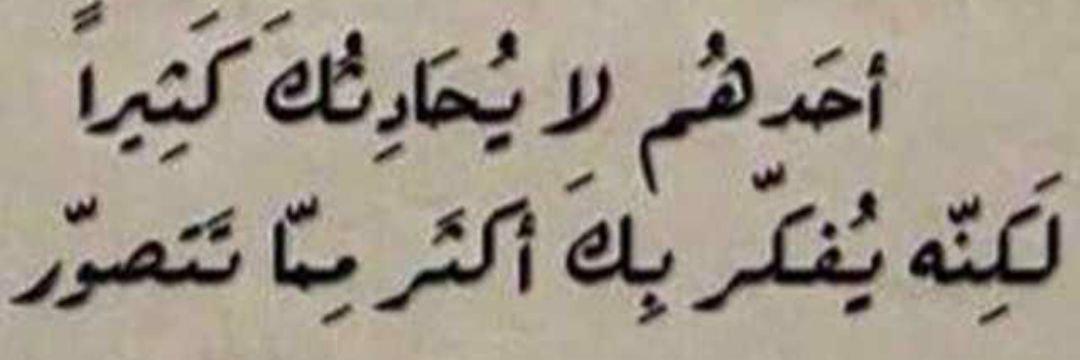 أحَدهُم لا يُحَادِثُكَ كَثِيراً
لَكِنّه يُفكّر بِكَ أكثَر مِمّا تَتَصوّر